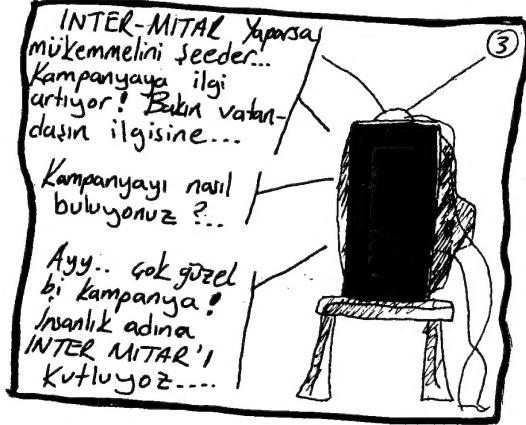 INTER-MİTAR Yaparsa
mükemmelini şeeder...
Kampanyaya ilgi
artıyor! Bakın vatan-
daşın ilgisine...
3
Kampanyayı nasıl
buluyonuz ?...
Ayy.. çok güzel
bi kampanya!
İnsanlık adına
INTER MİTAR'I
Kutluyoz....